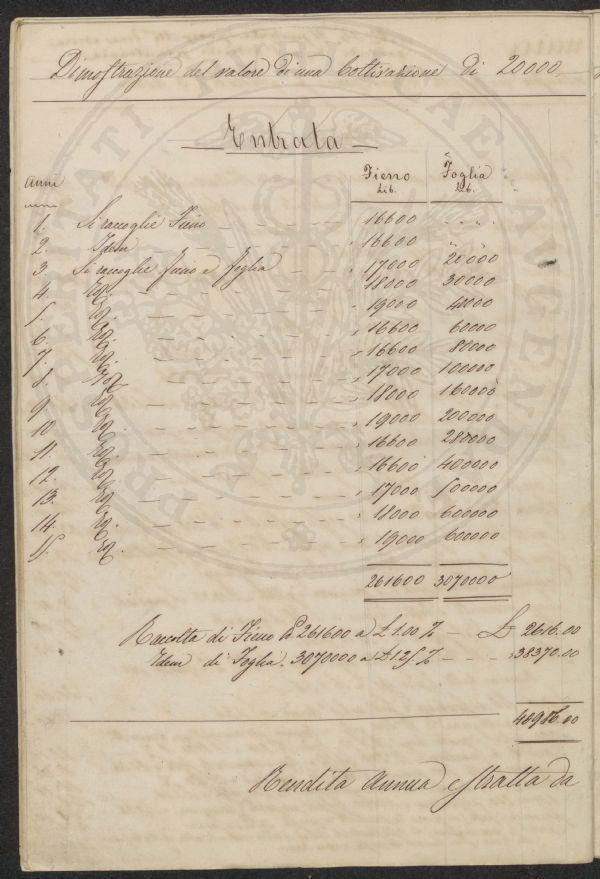 Dimostrazione del valore di una Coltivazione di 20000
Entrata
Anni Fieno Lib. Foglia Lib.
1. Si raccoglie Fieno 16600
2. Idem 16600 " "
3. Si raccoglie fieno e foglia 17000 20000
4. Id. 18000 30000
5. Id. 19000 40000
6. Id. 16600 60000
7. Id. 16600 80000
8. Id. 17000 100000
9 Id. 18000 160000
10. Id. 19000 200000
11. Id. 16600 280000
12. Id. 16600 400000
13. Id. 17000 500000
14. Id. 18000 600000
15. Id. 19000 600000
261600 3070000
Raccolta di Fieno 261600 a £ 1.00 % — £ 2616.00
Idem di Foglia. 3070000 a £ 1.25 % 38370.00
40986.00
Rendita Annua estratta da
PROSPERITATI PUBLICAE AUGENDAE